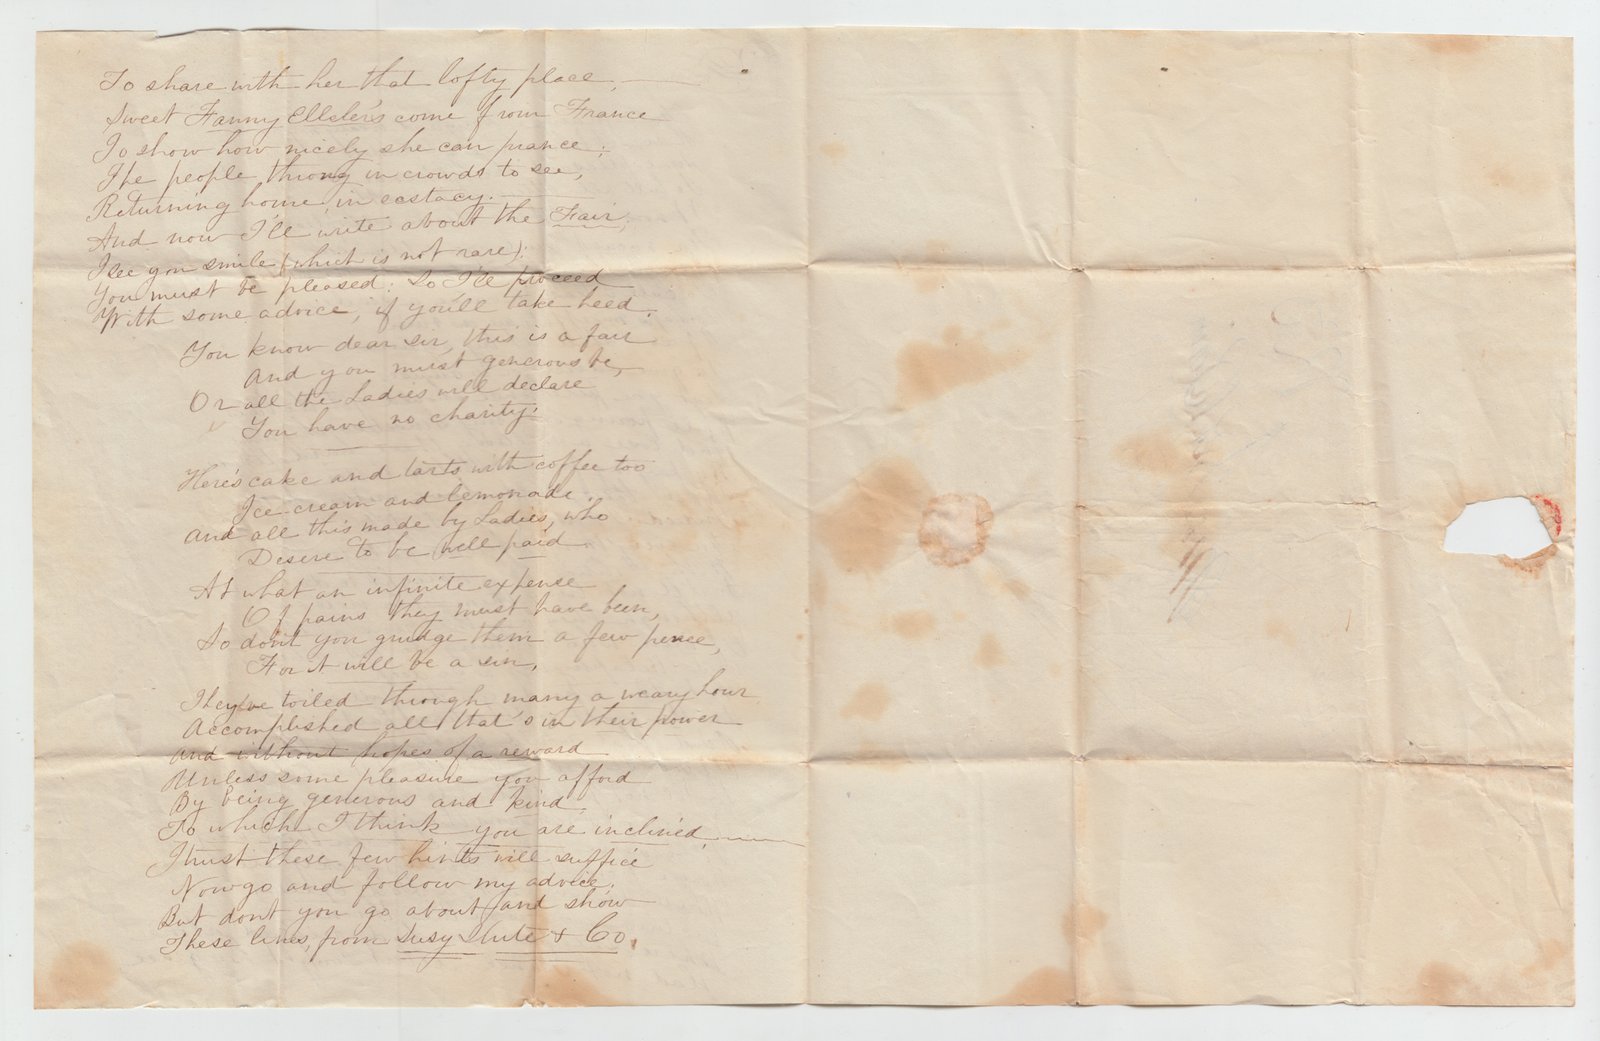 To share with her that lofty place,
Sweet Fanny Ellslers come from France
To show how nicely she can prance;
The people throng in crowds to see,
Returning home in ecstacy.
And now I'll write about the Fair,
I see you smile (which is not rare);
You must be pleased; So I'le proceed
With some advice, if you'll take heed.
You know dear sir, this is a fair
And you must generous be,
Or all the Ladies will declare
You have no charity.
Here's cake and tarts with coffee too
Ice cream and lemonade.
And all this made by Ladies, who
Desere to be well paid
At what an infinite expense
Of pains they must have been,
So dont you grudge them a few pence,
For it will be a sin,
They've toiled through many a weary hour
Accomplished all that's in their power
And without hopes of a reward
Unless some pleasure you afford
By being generous and kind
To which I think you are inclined,
I trust these few hints will suffice
Now go and follow my advice.
But dont you go about and show
These lines, from Susy & Co.